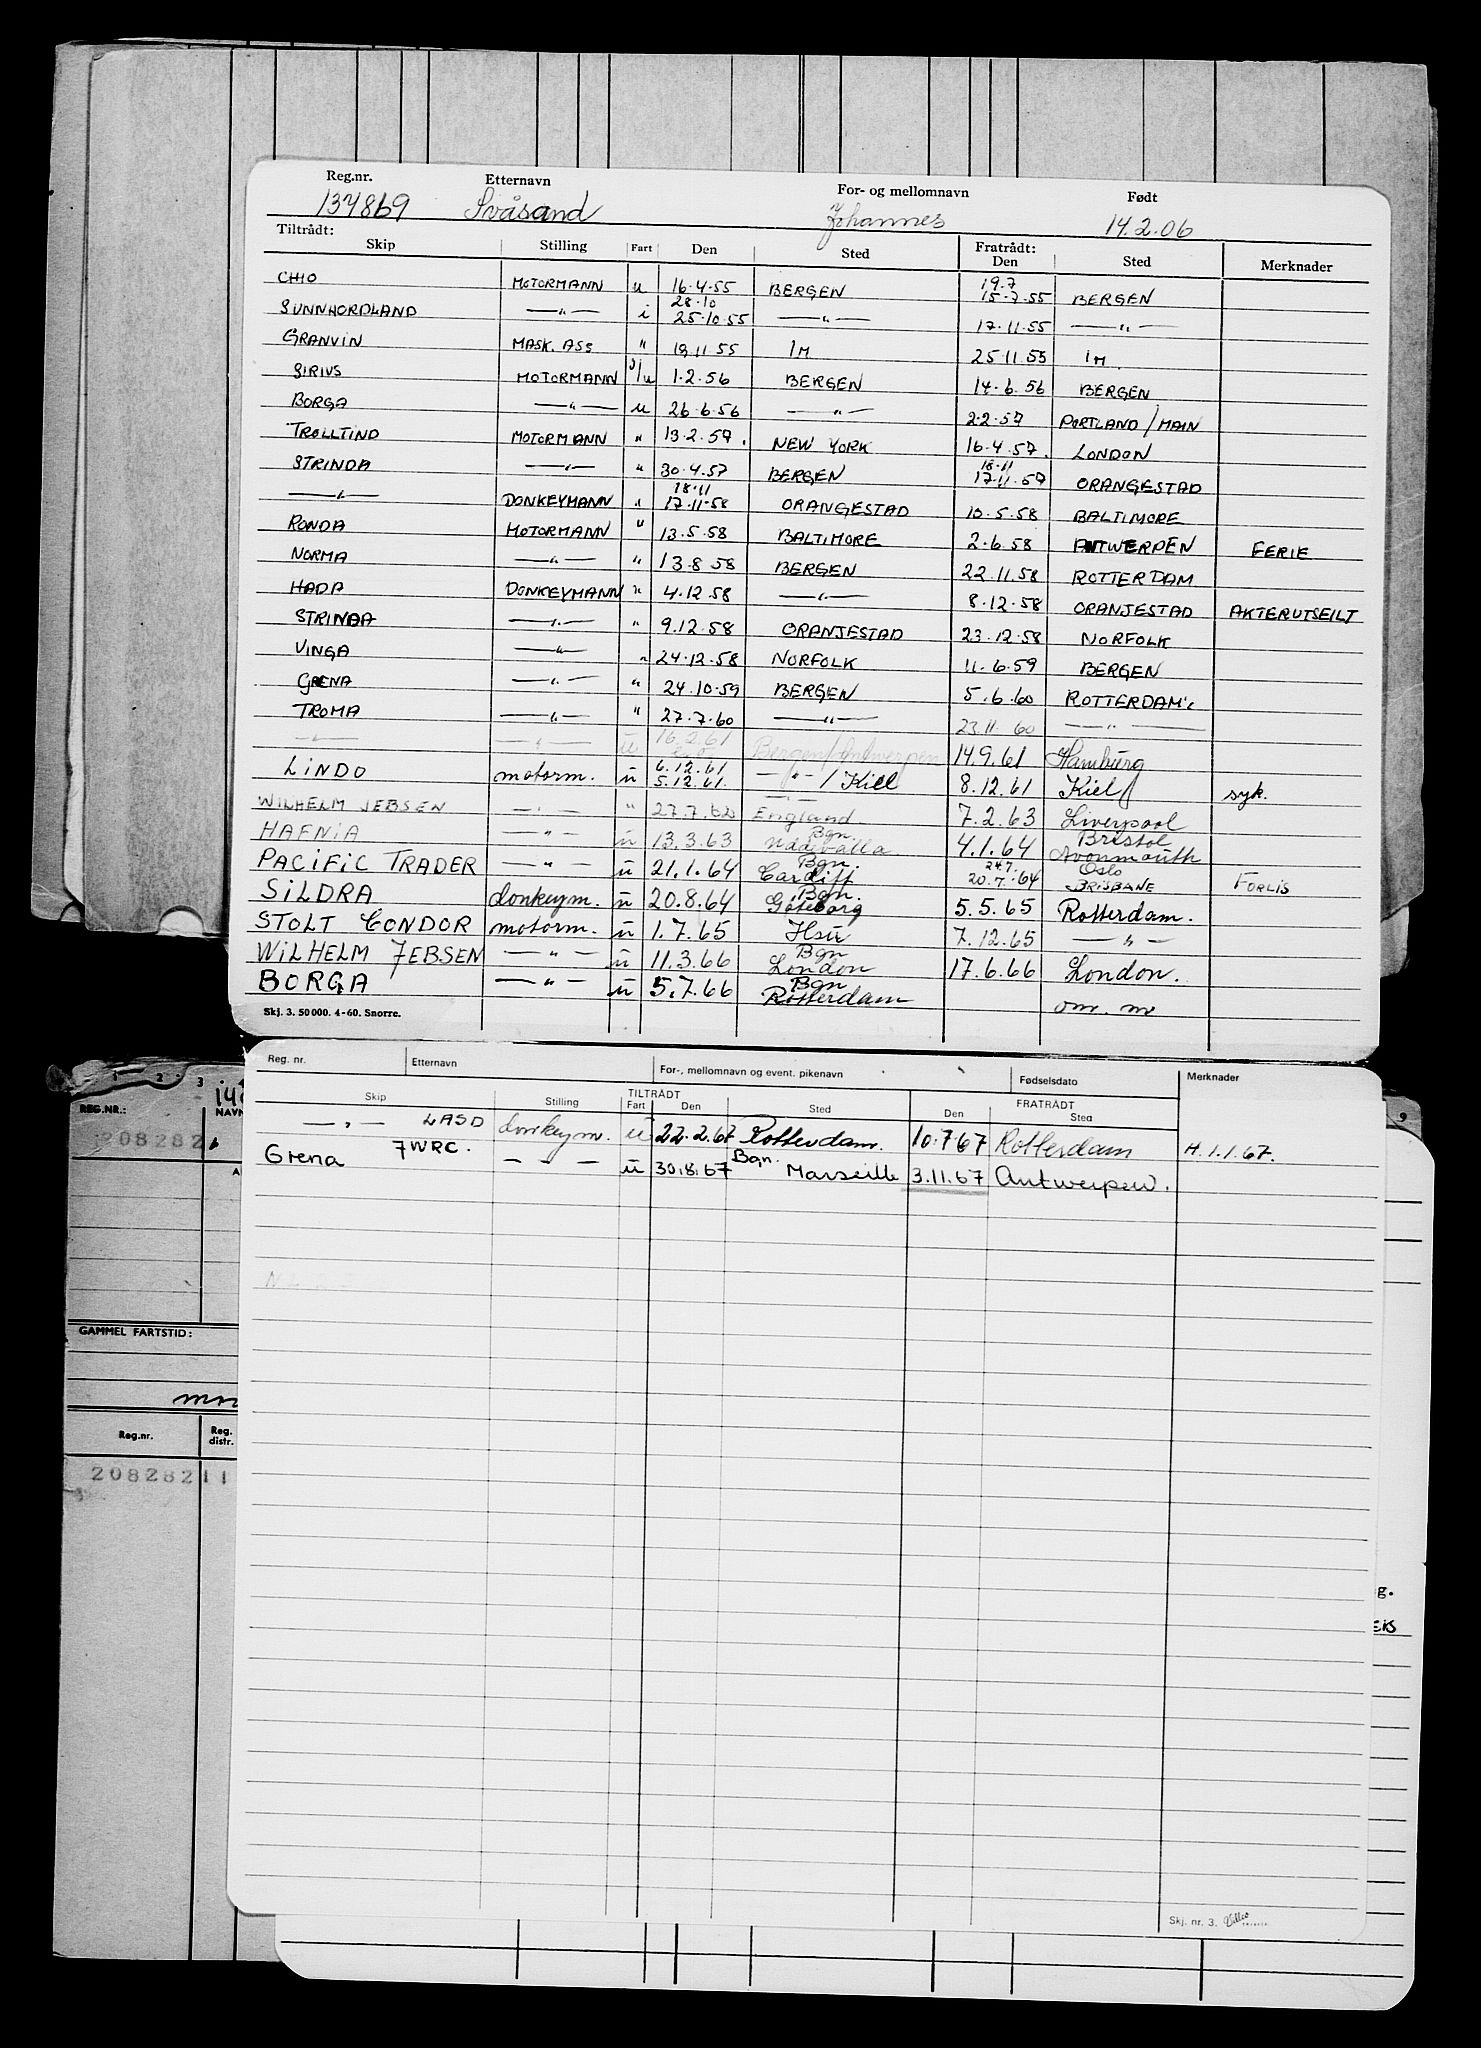 Reg.nr. Etternavn For- og mellomnavn Født
137869 Svåsand Johannes 14.2.06
Tiltrådt: Fratrådt:
Skip Stilling Fart Den Sted Den Sted Merknader
CHIO MOTORMANN u 16.4.55 BERGEN 19.7 15.7.55 BERGEN
SUNNHORDLAND —„— i 28.10 25.10.55 —„— 17.11.55 —„—
GRANVIN MASK. ASS " 19.11.55 IM 25.11.55 IM
SIRIUS MOTORMANN /u 1.2.56 BERGEN 14.6.56 BERGEN
BORGA —„— u 26.6.56 —„— 2.2.57 PORTLAND/MAIN
TROLLTIND MOTORMANN " 13.2.57. NEW YORK 16.4.57. LONDON
STRINDA —„— " 30.4.57 BERGEN 18.11 17.11.57 ORANGESTAD
—„— DONKEYMANN " 18.11 17.11.58 ORANGESTAD 10.5.58 BALTIMORE
RONDA MOTORMANN " 13.5.58 BALTIMORE 2.6.58 ANTWERPEN FERIE
NORMA —„— " 13.8.58 BERGEN 22.11.58 ROTTERDAM
HADA DONKEYMANN " 4.12.58 —„— 8.12.58 ORANJESTAD AKTERUTSEILT
STRINDA —„— " 9.12.58 ORANJESTAD 23.12.58 NORFOLK
VINGA —„— " 24.12.58 NORFOLK 11.6.59 BERGEN
GRENA —„— " 24.10.59 BERGEN 5.6.60 ROTTERDAM
TROMA —„— " 27.7.60 —„— 23.11.60 —„—
—„— —„— u 16.2.61 Bergen/Antwerpen 14.9.61 Hamburg
LINDO motorm. u 6.12.61 5.12.61. —„— / Kiel 8.12.61 Kiel syk.
WILHELM JEBSEN —„— " 27.7.62 England 7.2.63 Liverpool
HAFNIA —„— u 13.3.63 Bgn. Uddevalla 4.1.64 Bristol Avonmouth
PACIFIC TRADER —„— u 21.1.64 Bgn. Cardiff 24.7. 20.7.64 Oslo BRISBANE FORLIS
SILDRA donkeym. u 20.8.64 Bgn. Göteborg 5.5.65 Rotterdam.
STOLT CONDOR motorm. u 1.7.65 Hsu 7.12.65 —„—
WILHELM JEBSEN —„— u 11.3.66 Bgn London 17.6.66 London.
BORGA —„— u 5.7.66 Bgn Rotterdam om. m
Skj. 3. 50 000. 4-60. Snorre.
Reg. nr. Etternavn For-, mellomnavn og event. pikenavn Fødselsdato Merknader
TILTRÅDT FRATRÅDT
Skip Stilling Fart Den Sted Den Sted
—„— LASD donkeym. u 22.2.67 Rotterdam. 10.7.67 Rotterdam H. 1.1.67.
Grena JWRC. — — — u 30.8.67 Bgn. Marseille 3.11.67 Antwerpen.
Skj. nr. 3.
1 2 3
REG.NR.: NAVN
208282
GAMMEL FARTSTID:
Reg.nr. Reg. distr.
208282 11
9
g.